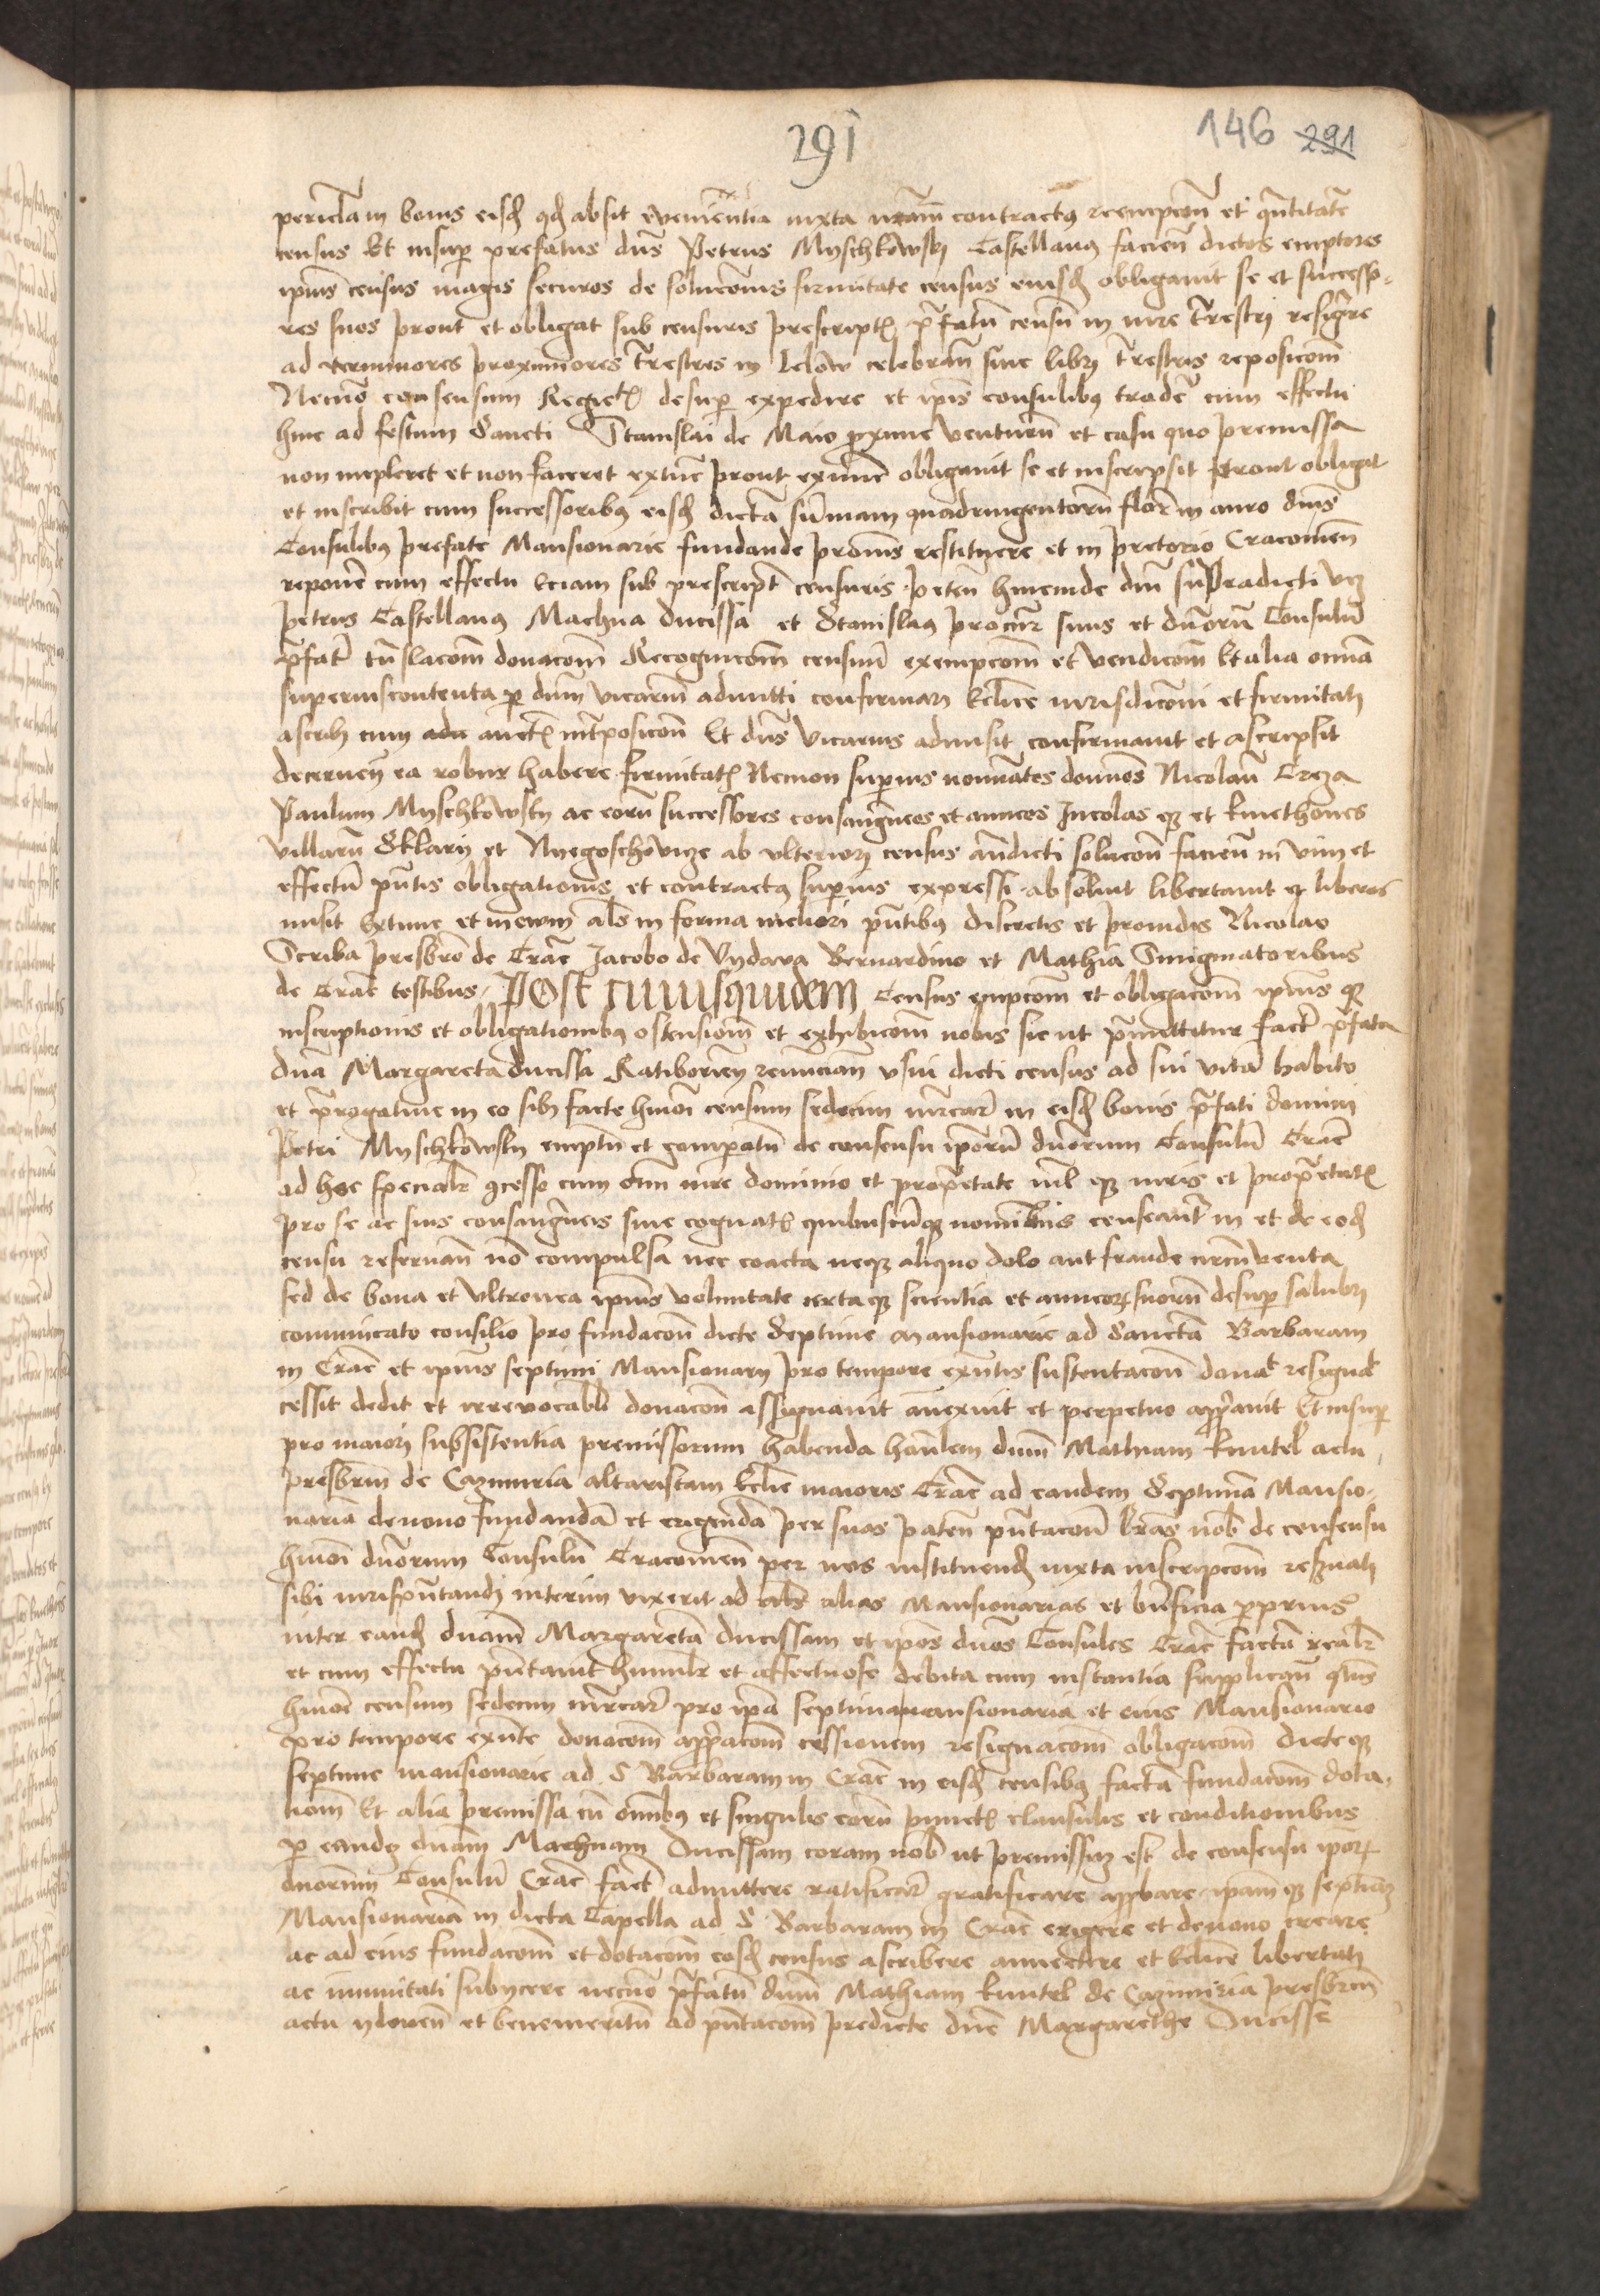 291
146 291
periclam in bonis eisdē qd absit evenientia iuxta contractus reempcōn et quātitatē
census Et insuper prefatus dn̄s Petrus Myschkowsky Castellanus facien̄ dictos emptores
ipsius census magis securos de solucōnis firmitate census eiusdē obligavit se et successo-
res suos prout et obligat sub censuris prescriptis p̄fatū censū in iure t̄restri resig̅re
ad terminores proximiores t̄restres in Lelow celebran̄ sine libri t̄restris reposicōm
Necnō consensum Regiet desuper expedire et ipīs consulibus tradē cum effectu
hinc ad festum Sancti Stanislai de Maio proxime venturū et casu quo premissa
non impleret et non faceret extūc prout exnūc obligavit se et inscripsit prout obligat
et inscribit cum successoribus eisdē dictā sūmam quadringentorū florn̄ in auro dn̄is
Consulibus prefate Mansionarie fundande pronis restituere et in pretorio Cracovien̄
reponē cum effectu Eciam sub prescript censuris peten̄ huiuide dn̄i supradicti vcz
Petrus Castellanus Machna ducissa et Stanislaus procur suus et dn̄orū Consulū
p̄fatʳ t̄nslacōm donacōm Recognicōm censuū exempcōm et vendicōm Et alia omīa
superius contenta p dn̄m vicariū admitti confirmari Ecl̄ice iurisdicōni et firmitati
ascribi cum auct̄ int̄posicōn Et dn̄s Vicarius admisit confirmavit et ascripsit
decernen̄ ea robur habere firmitatis Necnon superius nominatos domnos Nicolaū Creza
Paulum Myschkowsky ac eorū successores consanguineos et amicos Incolas qz et kmethones
villarū Sklary et Nyegoschovicze ab ulteriori census an̄dicti solucōn facien̄ in vim et
effectū pn̄tis obligationis et contractus superius expressi absolvit libertavit qz liberos
misit Extunc et in ewm al̄s in forma meliori pn̄tibus discretis et providis Nicolao
Scriba presbr̄o de Crac̄ Jacobo de Vydava Bernardino et Mathia Smigmatoribus
de Crac̄ testibus. Post cuiusquidem Census empcōm et obligacōm ipsius qz
inscriptionis et obligationibus ostensiōm et exhibicōm nobis sic ut p̄mittitur fact p̄fata
dn̄a Margareta ducissa Ratiborien̄ renuncian̄ usui dicti census ad sui vitā habito
et p̄rogative in eo sibi facte hmōi censum sedecim m̄rcarʳ in eisdē bonis p̄fati domini
Petri Myschkowsky emptū et comparatū de consensu ipsorū dn̄orum Consulū Crac̄
ad hoc specialr̄ 9cesso cum om̄i iure dominio et prop̄etate nīl qz iuris et prop̄etatis
pro se ac suis consangwineis sive cognatis quibuscūqz nominibus censeant̄ in et de eodē
censu reservan̄ nō compulsa nec coacta neqz aliquo dolo aut fraude circū venta
sed de bona et ultronea ipsius voluntate certaqz scientia et amicorū suorū desuper salubri
communicato consilio pro fundacōn dicte Septime Mansionarie ad Sanctā Barbaram
in Crac̄ et ipsius septimi Mansionarii pro tempore exn̄tis sustentacōn donavit resignavit
cessit dedit et irrevocabili donacōn assignavit anexuit et perpetuo appropavit Et insuper
pro maiori subsistentia premissorum habenda hon̄lem dn̄m Mathiam kuntel actu
presbr̄m de Cazimiria altaristam Ecl̄ie maioris Crac̄ ad eandem Septimā Mansio-
nariā denovo fundandā et erigendā per suas paten̄ pn̄tacōn l̄ras nob̄ de consensu
hmōi dn̄orum Consulū Cracovien̄ per nos instituendū iuxta inscripcōm reservati
sibi iurispn̄tandi interim vixerit ad alias Mansionarias et bn̄ficia pprius
inter eandē dn̄am Margaretā ducissam et ipsos dn̄os Consules Crac̄ factā realr̄
et cum effectu pn̄tavit humilr̄ et affectuose debita cum instantia supplican̄ qtn̄s
hmōi censum sedecim m̄rcarʳ pro ipsa septima mansionaria et eius Mansionario
pro tempore exn̄te donacōm appropacōm cessionem resignacōm obligacōm dicteqz
septime mansionarie ad S Barbaram in Crac̄ in eisdē censibus factā fundacōm dota-
tiōm Et alia premissa cū om̄ibus et singulis eorū punctis clausulis et conditionibus
p eandē dn̄am Machnam Ducissam coram nob̄ ut premissum est de consensu ipsorū
dn̄orum Consulū Crac̄ fact admittere ratificare gratificare approbare ipsam qz septimā
Mansionariā in dicta Capella ad S Barbaram in Crac̄ erigere et denovo creare
ac ad eius fundacōm et dotacōm eosdē census ascribere annectere et Ecl̄ice libertati
ac imunitati subycere necnō p̄fatū dn̄m Mathiam kuntel de Cazimiria presbr̄m
actu ydoneū et benemeritū ad pn̄tacōm predicte dn̄e Margarethe Ducisse